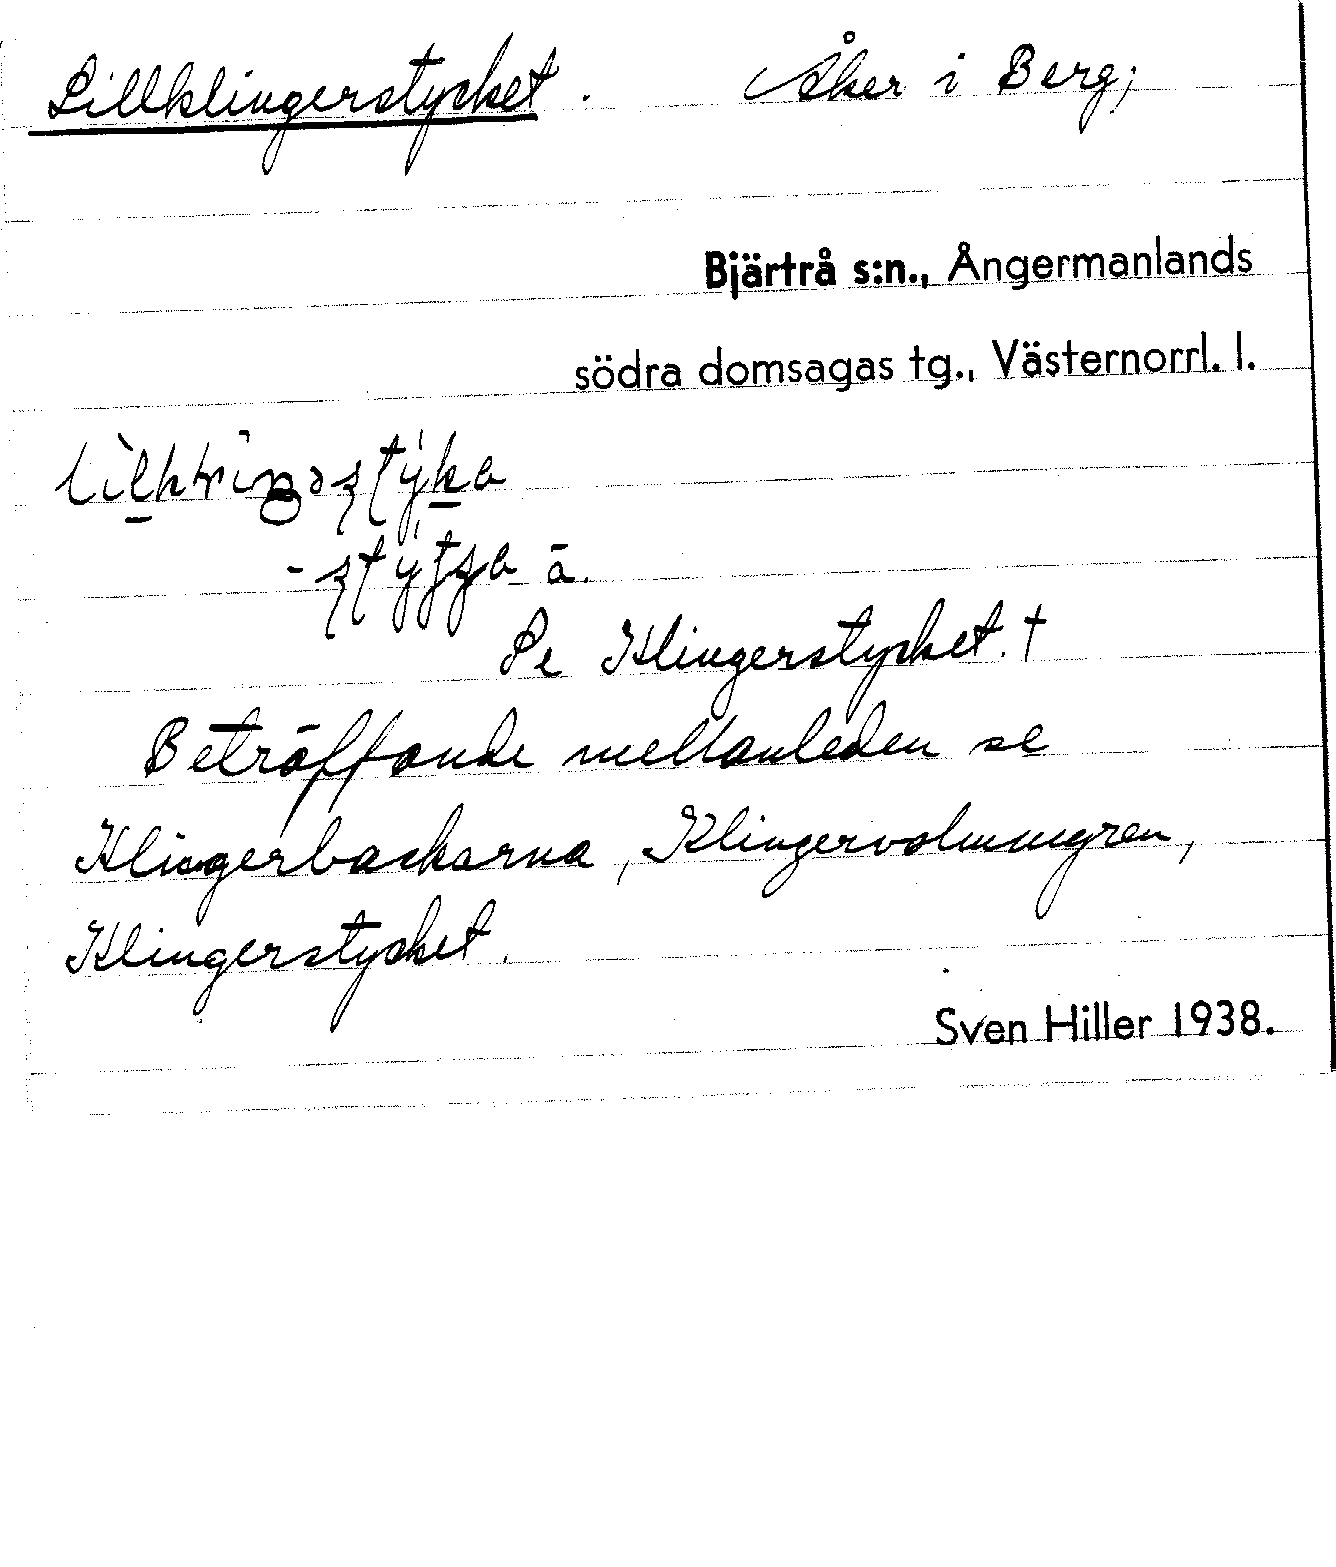 Lillklingerstycket. Åker i Berg;
Bjärtrå s:n., Ångermanlands
södra domsagas tg., Västernorrl. l.
ä.
Se Klingerstycket. †
Beträffande mellanleden se
Klingerbackarna, Klingervolmmyren,
Klingerstycket.
Sven Hiller 1938.